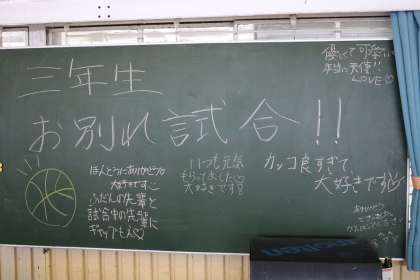 三年生
お別れ試合!!
優しくて可愛い
本当に天使!!
LOVE♡
ほんとうにありがとう
大好きです
ふだんの先輩と
試合中の先輩に
ギャップもえ♡
いつも元気
もらってました♡
大好きです
カッコ良すぎて、
大好きです